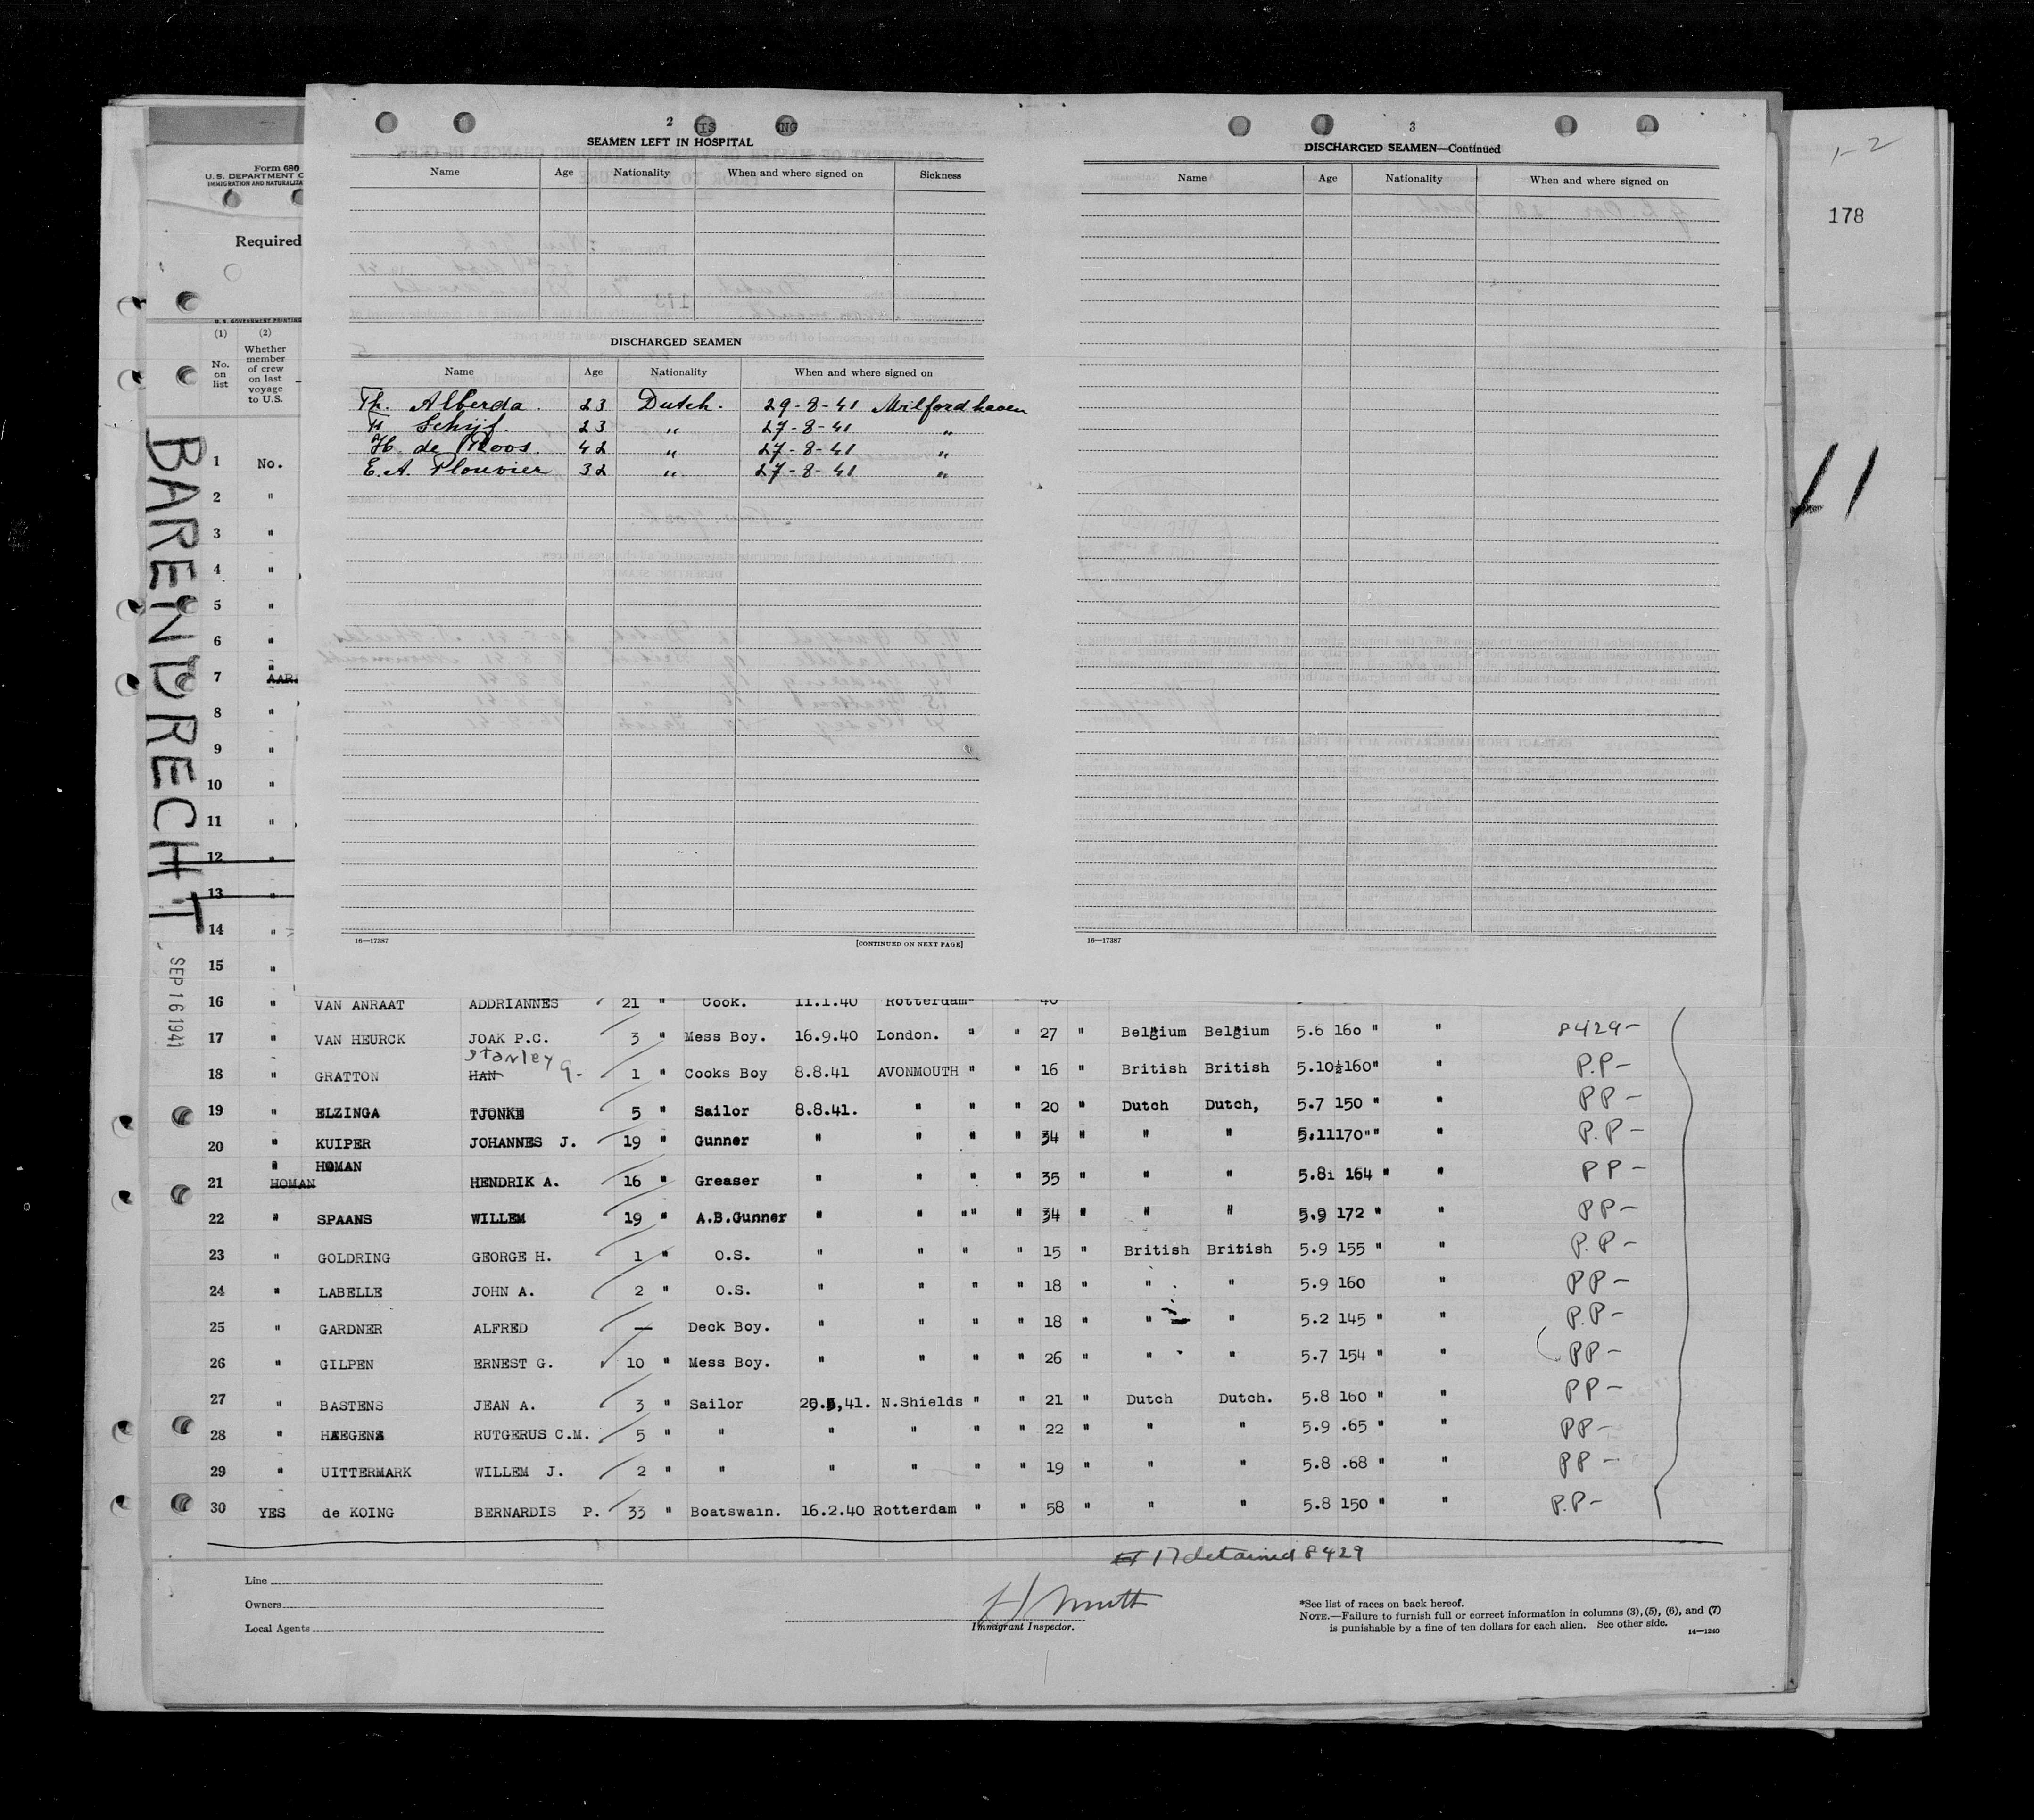 1-2
178
11
Form 680
U.S. DEPARTMENT
IMMIGRATION AND
Required
U. S. GOVERNMENT PRINTING
(1) (2)
No. on list
Whether member of crew on last voyage to U.S.
BARENDRECHT
SEP 16 1941
2
SEAMEN LEFT IN HOSPITAL
Name Age Nationality When and where signed on Sickness
DISCHARGED SEAMEN
Name Age Nationality When and where signed on
Th. Alberda. 23 Dutch. 29-8-41 Milfordhaven
Schijf. 23 " 27-8-41 "
H. de Roos. 42 " 27-8-41 "
E.A. Plouvier 32 " 27-8-41 "
16—17387 [CONTINUED ON NEXT PAGE]
3
DISCHARGED SEAMEN—Continued
Name Age Nationality When and where signed on
16—17387
1 No.
2 "
3 "
4 "
5 "
6 "
7 "
8 "
9 "
10 "
11 "
12 "
13 "
14 "
15 "
16 " VAN ANRAAT ADDRIANNES 21 " Cook. 11.1.40 Rotterdam " " 40
17 " VAN HEURCK JOAK P.C. 3 " Mess Boy. 16.9.40 London. " " 27 " Belgium Belgium 5.6 160 " " 8429-
Stanley G.
18 " GRATTON HAN 1 " Cooks Boy 8.8.41 AVONMOUTH " " 16 " British British 5.10½160" " P.P-
19 " ELZINGA TJONKE 5 " Sailor 8.8.41. " " " 20 " Dutch Dutch, 5.7 150 " " PP-
20 " KUIPER JOHANNES J. 19 " Gunner " " " " 34 " " " 5.11170"" " P.P-
" HOMAN
21 HOMAN HENDRIK A. 16 " Greaser " " " " 35 " " " 5.8 164 " " PP-
22 " SPAANS WILLEM 19 " A.B.Gunner " " "" " 34 " " " 5.9 172 " " PP-
23 " GOLDRING GEORGE H. 1 " O.S. " " " " 15 " British British 5.9 155 " " P.P-
24 " LABELLE JOHN A. 2 " O.S. " " " " 18 " " " 5.9 160 " PP-
25 " GARDNER ALFRED — Deck Boy. " " " " 18 " " " 5.2 145 " " P.P-
26 " GILPEN ERNEST G. 10 " Mess Boy. " " " " 26 " " " 5.7 154 " " PP-
27 " BASTENS JEAN A. 3 " Sailor 20.5,41. N.Shields " " 21 " Dutch Dutch. 5.8 160 " " PP-
28 " HAEGENS RUTGERUS C.M. 5 " " " " " " 22 " " " 5.9 .65 " " PP-
29 " UITTERMARK WILLEM J. 2 " " " " " " 19 " " " 5.8 .68 " " PP-
30 YES de KOING BERNARDIS P. 33 " Boatswain. 16.2.40 Rotterdam " " 58 " " " 5.8 150 " " P.P-
17 detained 8429
Line
Owners
Local Agents
Immigrant Inspector.
*See list of races on back hereof.
NOTE.—Failure to furnish full or correct information in columns (3), (5), (6), and (7)
is punishable by a fine of ten dollars for each alien. See other side. 14—1240